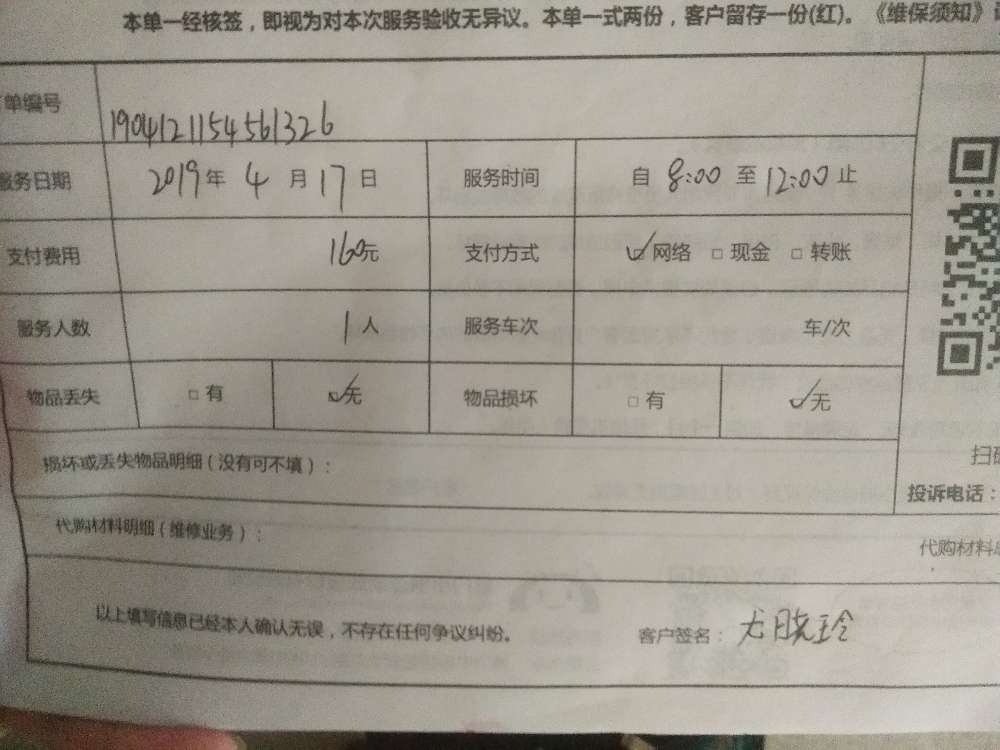 本单一经核签，即视为对本次服务验收无异议。本单一式两份，客户留存一份(红)。《维保须知》
单编号 1904121154561326
服务日期 2019年 4 月 17 日 服务时间 自 8:00 至 12:00 止
支付费用 160元 支付方式 ☑网络 □现金 □转账
服务人数 1人 服务车次 车/次
物品丢失 □有 ☑无 物品损坏 □有 ☑无
损坏或丢失物品明细（没有可不填）：
扫码
投诉电话：
代购材料明细（维修业务）：
代购材料
以上填写信息已经本人确认无误，不存在任何争议纠纷。 客户签名：尤晓玲